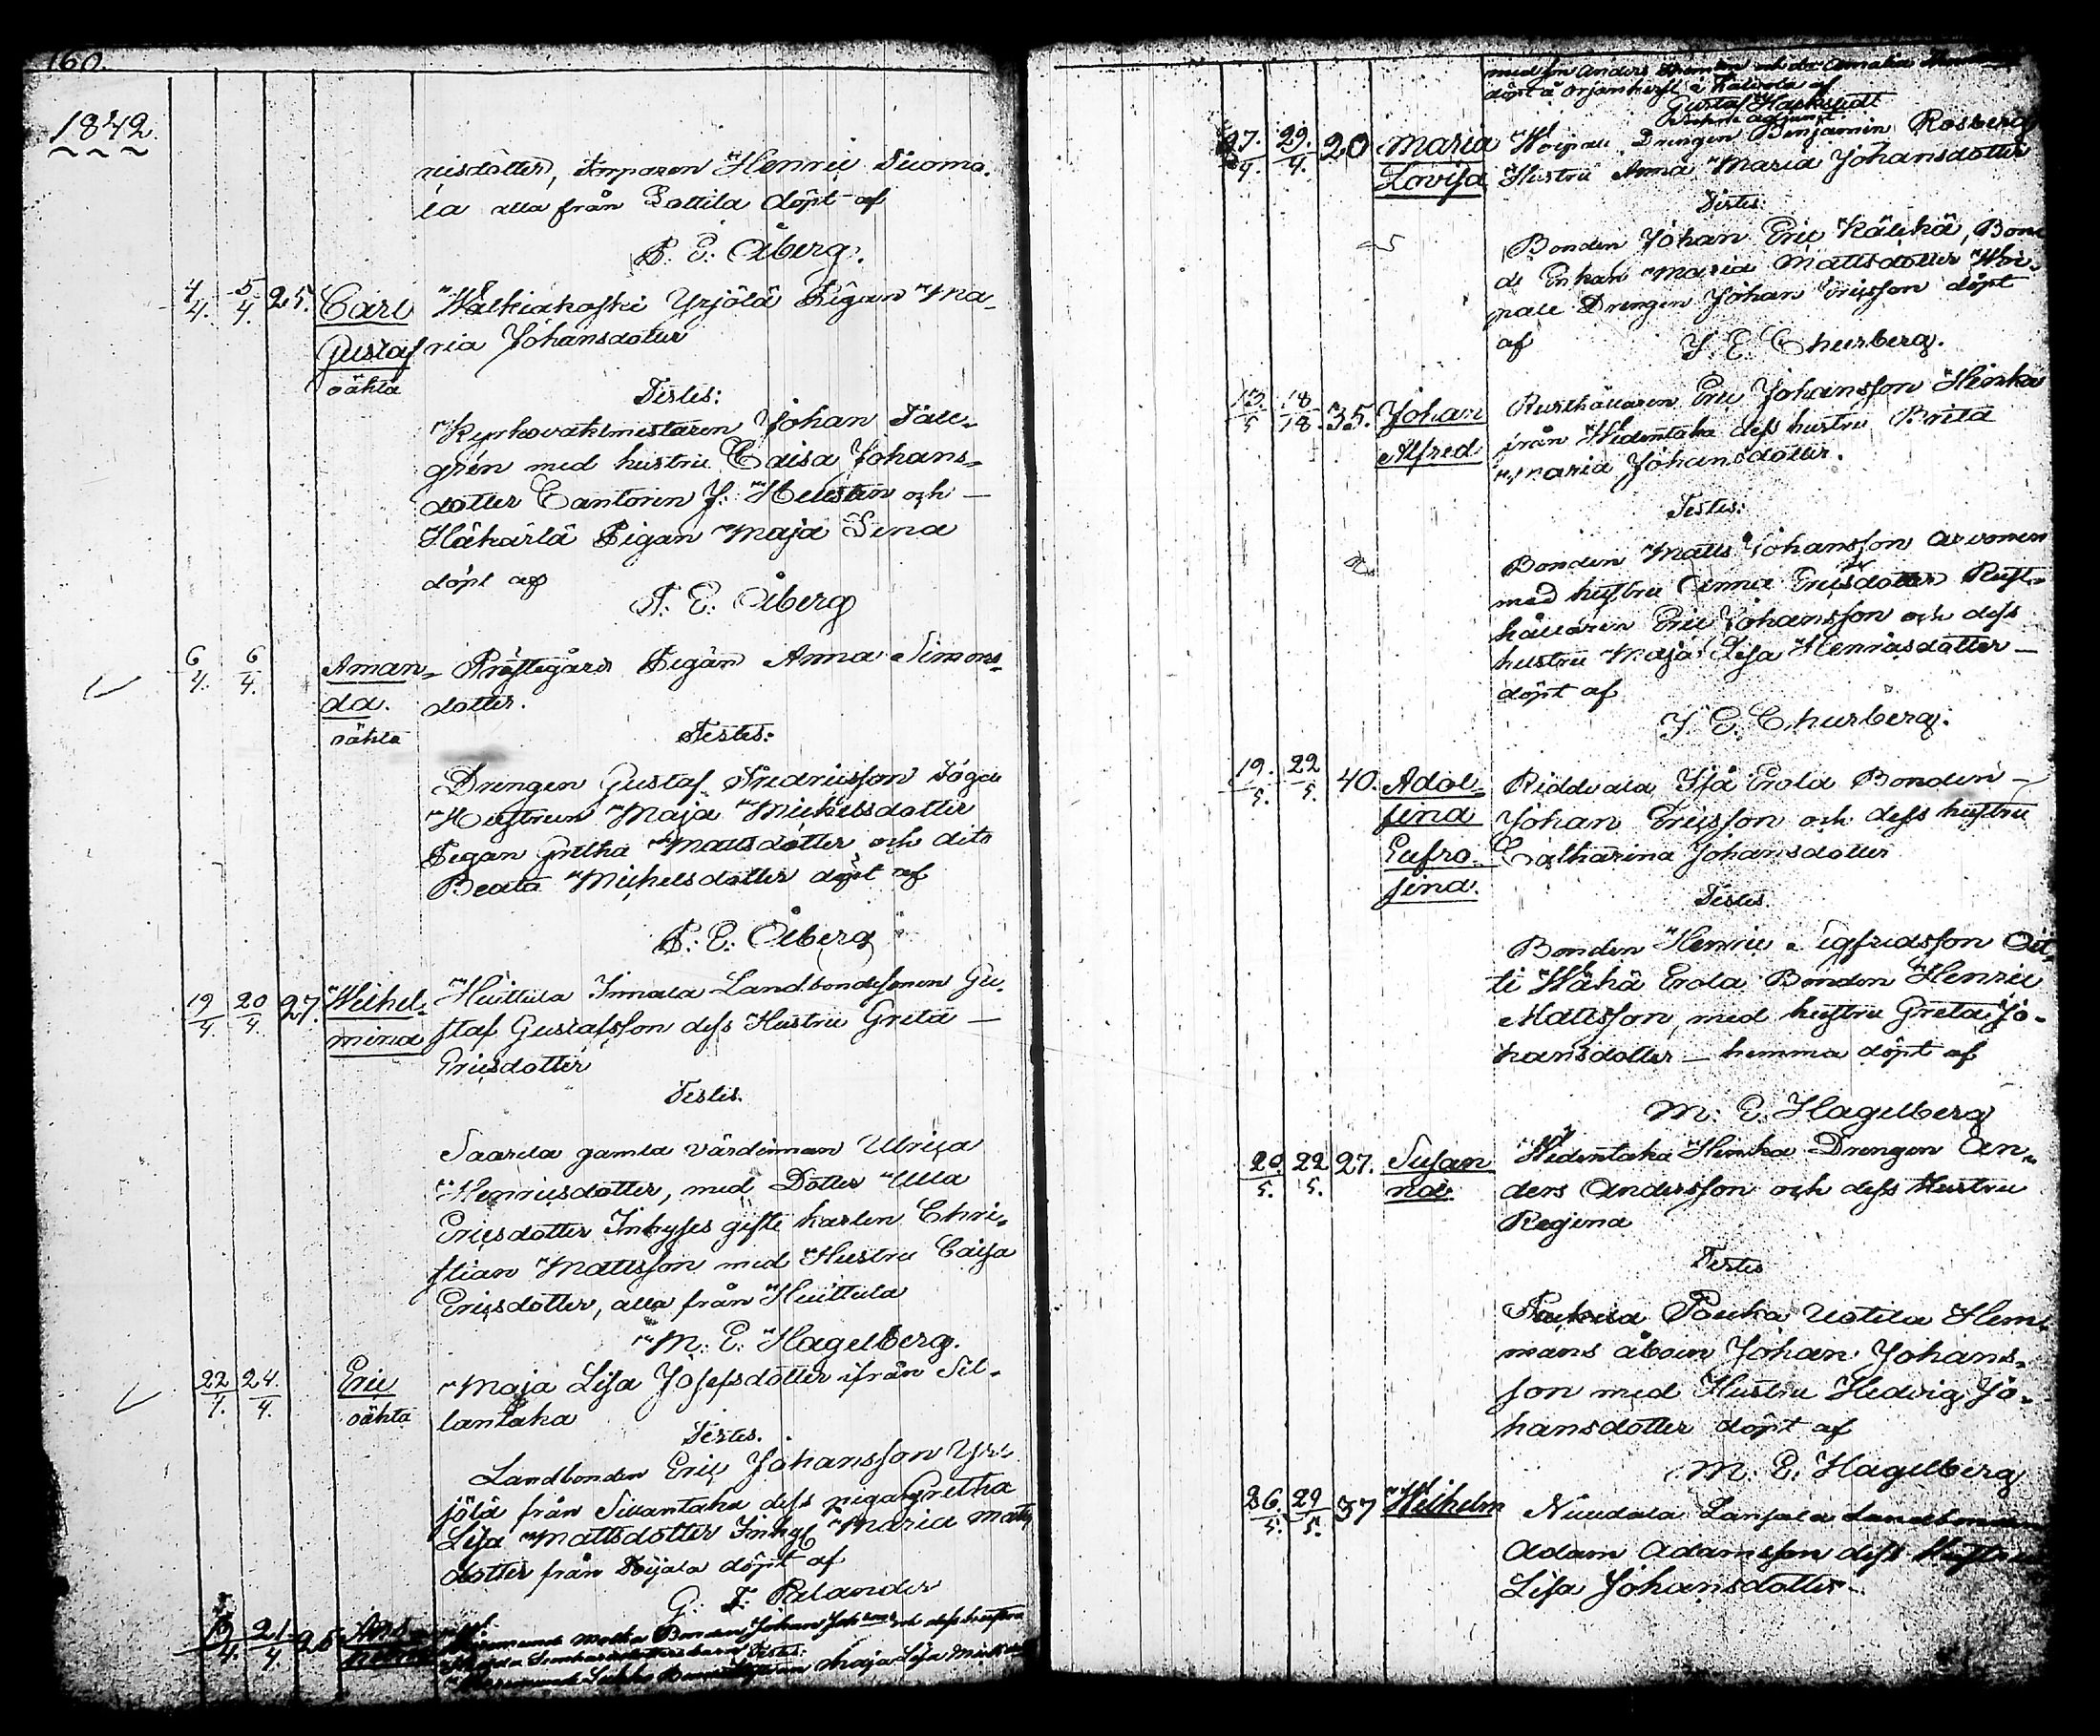 160.
1842.
ricsdotter, Torparen Henric Suoma-
la alla från Lottila döpt af
F. E. Åberg.
4/4. 5/4. 25. Carl Gustaf oäkta
Walkiakoski Yrjölä Pigan Ma-
ria Johansdotter
Testes:
Kyrkovaktmestaren Johan Täll-
grén med hustru Caisa Johans-
dotter Cantorin J. Hellsten och
Häkärlä Pigan Maja Lena
döpt af
F. E. Åberg
6/4. 6/4. Aman-
da. oäkta
Prästegårds Pigan Anna Simons-
dotter.
Testes:
Drengen Gustaf Fredricsson
Hustrun Maja Mickelsdotter
Pigan Gretha Mattsdotter och dito
Beata Michelsdotter döpt af
F. E. Åberg
19/4. 20/4. 27. Wilhel-
mina
Huittula Innala Landbondesonen Gu-
staf Gustafsson dess Hustru Greta
Ericsdotter
Testes.
Saarela gamla värdinnan Ulrica
Henricsdotter, med Dotter Ulla
Ericsdotter Inhyses gifte karlen Chri-
stian Mattsson med Hustru Caisa
Ericsdotter, alla från Huittula
M. E. Hagelberg.
22/4. 24/4. Eric oäkta
Maja Lisa Josefsdotter ifrån Sil-
lantaka
Testes.
Landbonden Eric Johansson Yr-
jölä från Sillantaka dess piga Gretha
Lisa Mattsdotter Inhys Maria Matts
dotter från Toijala döpt af
G. F. Relander
21/4. 25
Bonden Johan och dess hustru
Testes:
Maja Lisa
med
döpt å af
Gustaf
27/4. 29/4. 20 Maria Lovisa
Woipali Drengen Benjamin Rosberg
Hustru Anna Maria Johansdotter
Testes:
Bonden Johan Eric Kälikä, Bon-
de Enkan Maria Mattsdotter Woi-
pale Drengen Johan Ericsson döpt
af J. E. Churberg.
13/5 18/18. 35. Johan Alfred
Rusthållaren Eric Johansson Heinka
från Widentaka dess hustru Brita
Maria Johansdotter.
Testes:
Bonden Matts Johansson Arvonen
med hustru Anna Ericsdotter Rust-
hållaren Eric Johansson och dess
hustru Maja Lisa Henricsdotter
döpt af
J. E. Churberg.
19/5. 22/5. 40. Adol-
fina
Eufro-
sina.
Riddvala Iså Erola Bonden
Johan Ericsson och dess hustru
Catharina Johansdotter
Testes
Bonden Henric Sigfridsson
Wähä Erola Bonden Henric
Mattsson, med hustru Greta Jo-
hansdotter hemma döpt af
M. E. Hagelberg
20/5. 22/5. 27. Susan
na.
Widentaka Heinka Drengen An-
ders Andersson och dess Hustru
Regina
Testes
Pouka Uotila Hem-
mans åboen Johan Johans-
son med Hustru Hedvig Jo-
hansdotter döpt af
M. E. Hagelberg
26/5. 29/5. 37 Wilhelm
Niuudala Lansala Landbonden
Adam Adamsson dess Hustru
Lisa Johansdotter